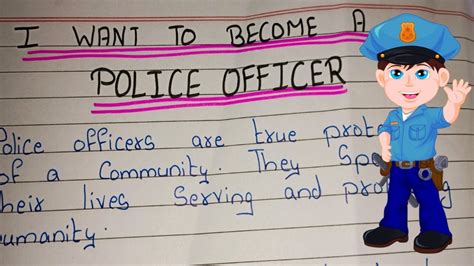 I WANT TO BECOME A
POLICE OFFICER
Police officers are true
of a Community. They
their lives Serving and
humanity.